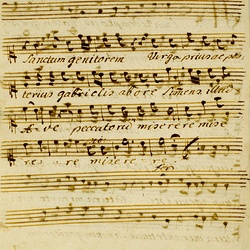 Sanctum genitorem Virgo prius ac pos
terius gabrielis ab ore Sumens illud
Ave peccatorũ miserere mise
re re misere re